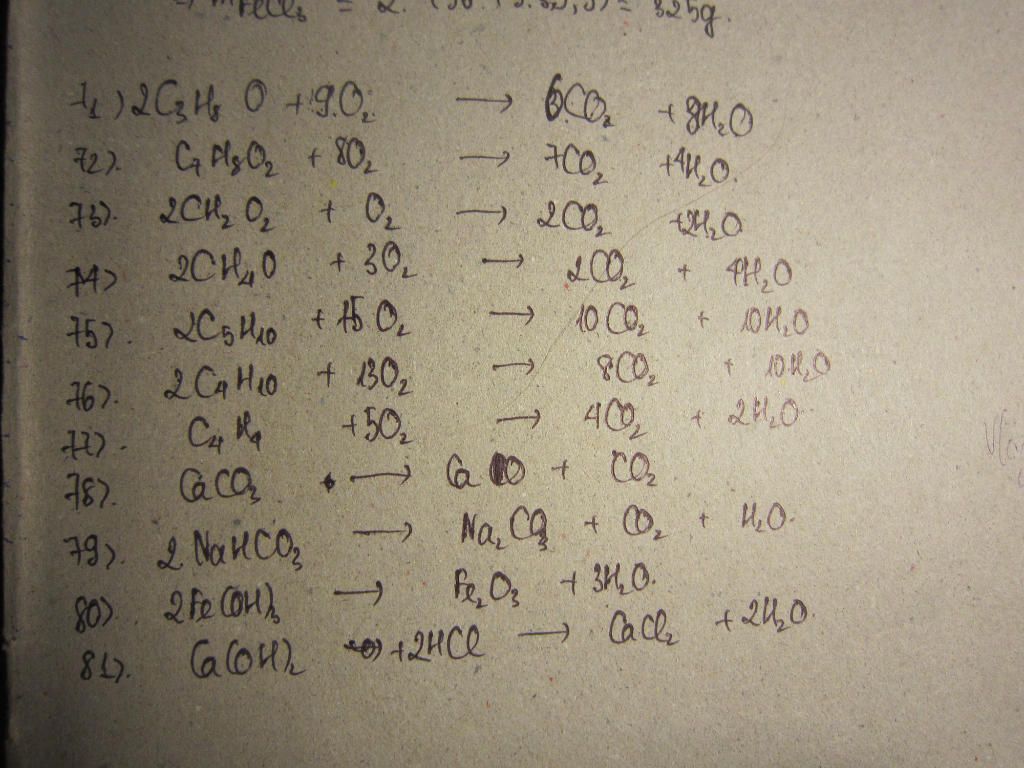 => mFeCl3 = 2. (56+3.35,5) = 325g.
71) 2C3H8O + 9.O2 → 6CO2 + 8H2O
72). C7H8O2 + 8O2 → 7CO2 + 4H2O.
73). 2CH2O2 + O2 → 2CO2 + 2H2O
74) 2CH4O + 3O2 → 2CO2 + 4H2O
75). 2C5H10 + 15O2 → 10CO2 + 10H2O
76). 2C4H10 + 13O2 → 8CO2 + 10H2O
77). C4H4 + 5O2 → 4CO2 + 2H2O
78). CaCO3 → CaO + CO2
79). 2NaHCO3 → Na2CO3 + CO2 + H2O.
80). 2Fe(OH)3 → Fe2O3 + 3H2O.
81). Ca(OH)2 + 2HCl → CaCl2 + 2H2O.